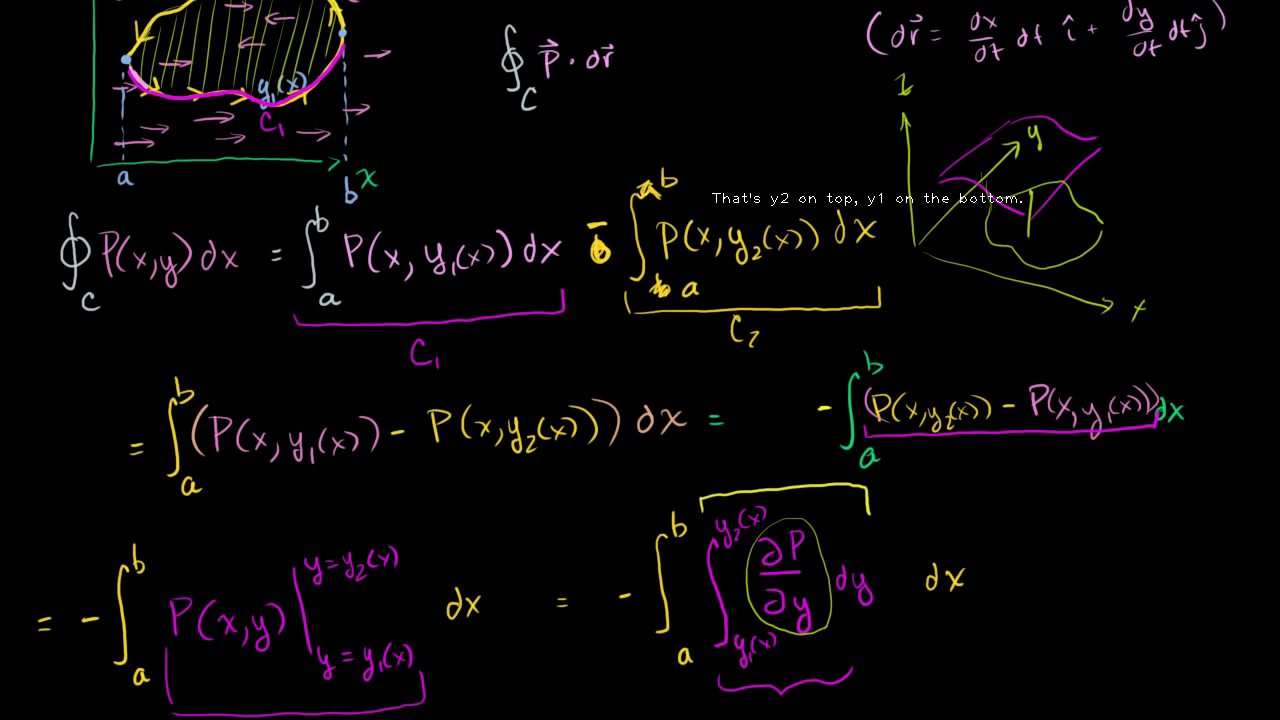 (dr⃗ = dx/dt dt î + dy/dt dt ĵ)
∮_C P⃗ · dr⃗
y₁(x)
C₁
z
y
x
a
b
x
That's y2 on top, y1 on the bottom.
∮_C P(x,y) dx = ∫_a^b P(x, y₁(x)) dx - ∫_a^b P(x, y₂(x)) dx
C₁
C₂
= ∫_a^b (P(x, y₁(x)) - P(x, y₂(x))) dx = - ∫_a^b (P(x, y₂(x)) - P(x, y₁(x))) dx
= - ∫_a^b P(x,y) |_{y = y₁(x)}^{y = y₂(x)} dx = - ∫_a^b ∫_{y₁(x)}^{y₂(x)} ∂P/∂y dy dx